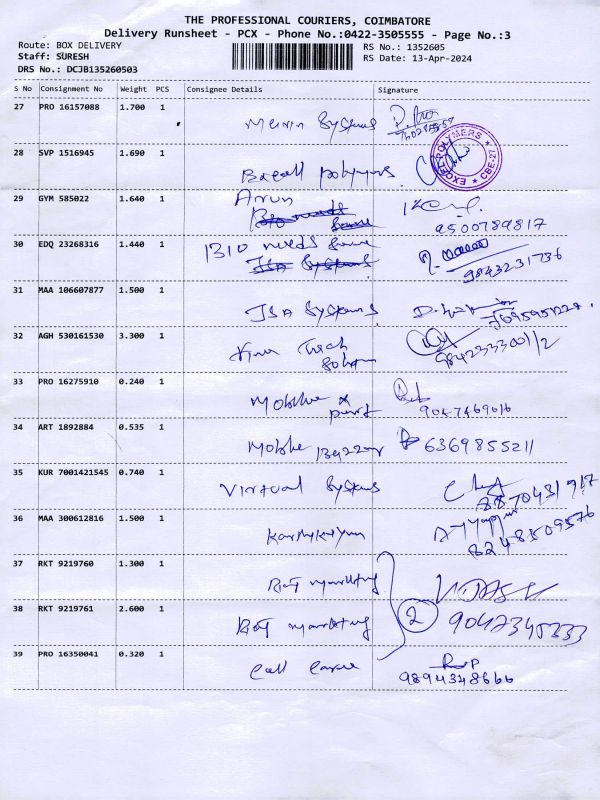 THE PROFESSIONAL COURIERS, COIMBATORE
Delivery Runsheet - PCX - Phone No.:0422-3505555 - Page No.:3
Route: BOX DELIVERY RS No.: 1352605
Staff: SURESH RS Date: 13-Apr-2024
DRS No.: DCJB135260503
S No Consignment No Weight PCS Consignee Details Signature
27 PRO 16157088 1.700 1 Systems
28 SVP 1516945 1.690 1 EXCEL POLYMERS CBE-27
29 GYM 585022 1.640 1 Arun
9500789817
30 EDQ 23268316 1.440 1 BIO needs
JSA Systems 9843231736
31 MAA 106607877 1.500 1 JSA Systems
32 AGH 530161530 3.300 1 Tech
33 PRO 16275910 0.240 1
9047469016
34 ART 1892884 0.535 1 Mobile 6369855211
35 KUR 7001421545 0.740 1 Virtual Systems
8870431917
36 MAA 300612816 1.500 1 Karthikeyan
8248509576
37 RKT 9219760 1.300 1 marketing
38 RKT 9219761 2.600 1 marketing 2 9047345333
39 PRO 16350041 0.320 1 Call
9894348666